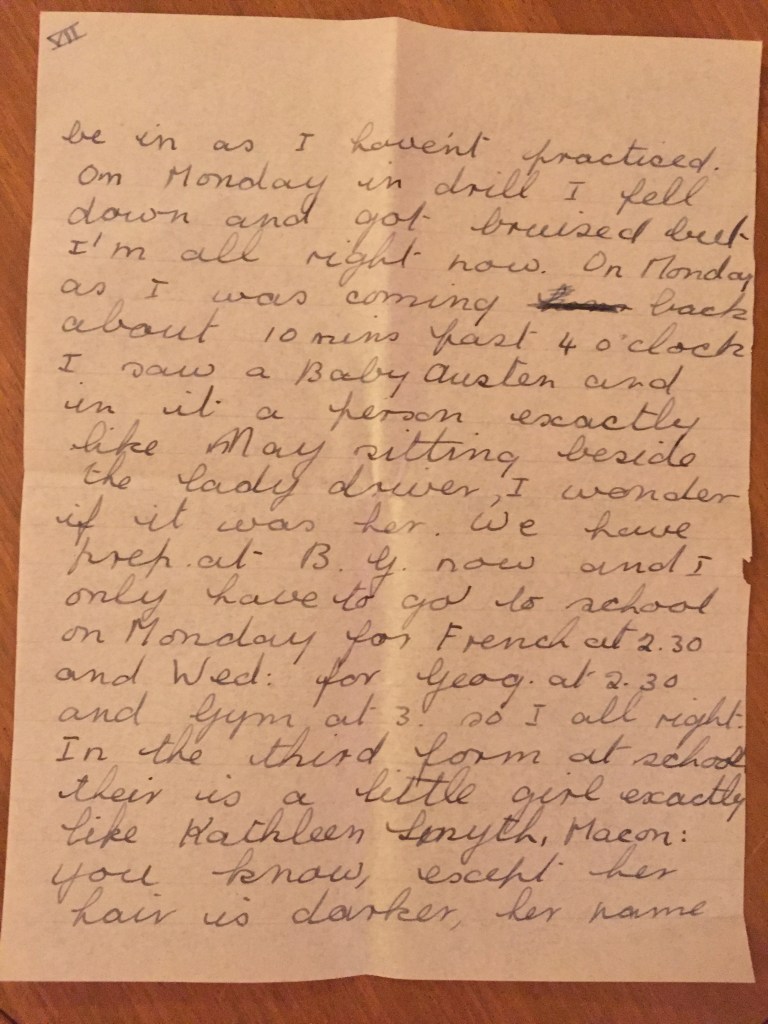 VII
be in as I haven't practised.
On Monday in drill I fell
down and got bruised but
I'm all right now. On Monday
as I was coming back
about 10 mins past 4 o'clock
I saw a Baby Austen and
in it a person exactly
like May sitting beside
the lady driver, I wonder
if it was her. We have
prep. at B. G. now and I
only have to go to school
on Monday for French at 2.30
and Wed: for Geog. at 2.30
and Gym at 3. so I all right.
In the third form at school
their is a little girl exactly
like Kathleen Smyth, Macon:
you know, except her
hair is darker, her name